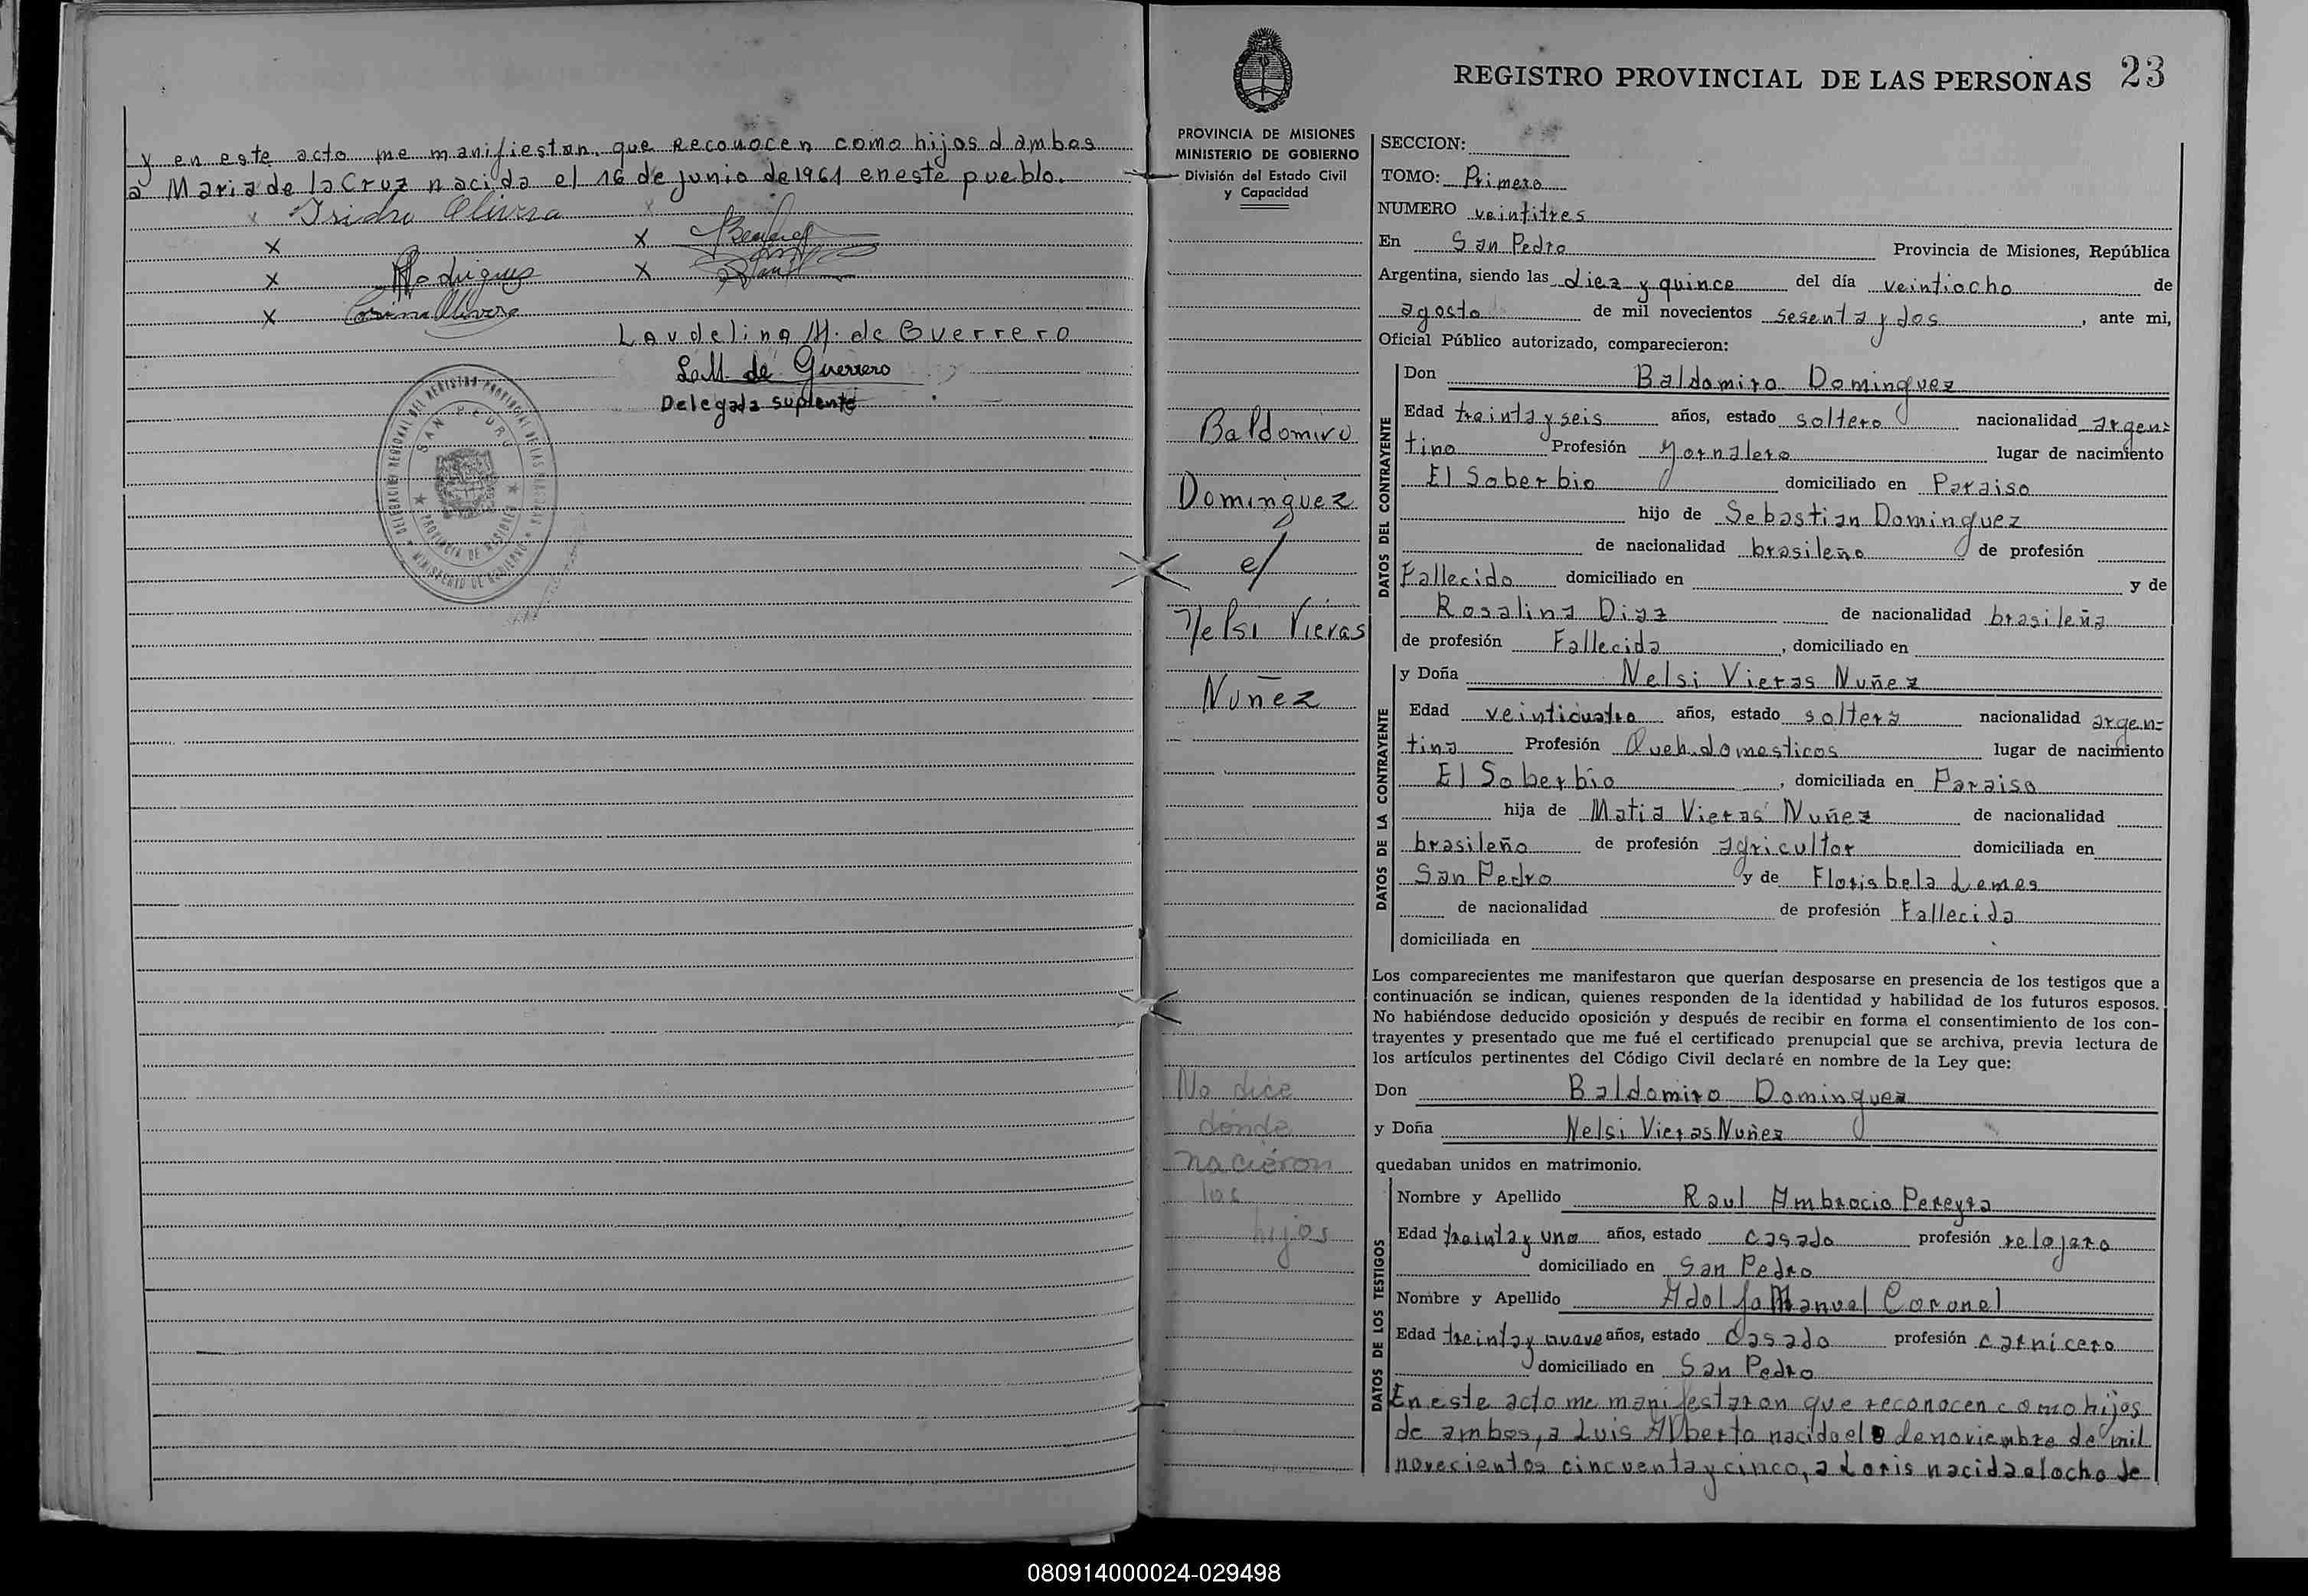 y en este acto me manifiestan, que Reconocen como hijos d ambos
a Maria de la Cruz nacida el 16 de junio de 1961 en este pueblo.
x Isidro Olivera x
x x
x Rodrigues x
x Olivera
Laudelina M. de Guerrero
L. M. de Guerrero
Delegada suplente
DELEGACION REGIONAL DEL REGISTRO PROVINCIAL DE LAS PERSONAS
SAN PEDRO
PROVINCIA DE MISIONES
MINISTERIO DE GOBIERNO
REGISTRO PROVINCIAL DE LAS PERSONAS 23
PROVINCIA DE MISIONES
MINISTERIO DE GOBIERNO
División del Estado Civil
y Capacidad
Baldomiro
Dominguez
c/
Nelsi Vieras
Nuñez
No dice
dónde
nacieron
los
hijos
SECCION:
TOMO: Primero
NUMERO veintitres
En San Pedro Provincia de Misiones, República
Argentina, siendo las diez y quince del día veintiocho de
agosto de mil novecientos sesenta y dos, ante mi,
Oficial Público autorizado, comparecieron:
DATOS DEL CONTRAYENTE
Don Baldomiro Dominguez
Edad treinta y seis años, estado soltero nacionalidad argen=
tino Profesión Yornalero lugar de nacimiento
El Soberbio domiciliado en Paraiso
hijo de Sebastian Dominguez
de nacionalidad brasileño de profesión
Fallecido domiciliado en y de
Rosalina Diaz de nacionalidad brasileña
de profesión Fallecida, domiciliado en
DATOS DE LA CONTRAYENTE
y Doña Nelsi Vieras Nuñez
Edad veinticuatro años, estado soltera nacionalidad argen=
tina Profesión Queh.domesticos lugar de nacimiento
El Soberbio, domiciliada en Paraiso
hija de Matia Vieras Nuñez de nacionalidad
brasileño de profesión agricultor domiciliada en
San Pedro y de Florisbela Lemes
de nacionalidad de profesión Fallecida
domiciliada en
Los comparecientes me manifestaron que querían desposarse en presencia de los testigos que a
continuación se indican, quienes responden de la identidad y habilidad de los futuros esposos.
No habiéndose deducido oposición y después de recibir en forma el consentimiento de los con-
trayentes y presentado que me fué el certificado prenupcial que se archiva, previa lectura de
los artículos pertinentes del Código Civil declaré en nombre de la Ley que:
Don Baldomiro Dominguez
y Doña Nelsi Vieras Nuñez
quedaban unidos en matrimonio.
DATOS DE LOS TESTIGOS
Nombre y Apellido Raul Ambrocio Pereyra
Edad treinta y uno años, estado casado profesión relojero
domiciliado en San Pedro
Nombre y Apellido Adolfo Manuel Coronel
Edad treinta y nueve años, estado Casado profesión carnicero
domiciliado en San Pedro
En este acto me manifestaron que reconocen como hijos
de ambos, a Luis Alberto nacido el de noviembre de mil
novecientos cincuenta y cinco, a Loris nacida el ocho de
080914000024-029498